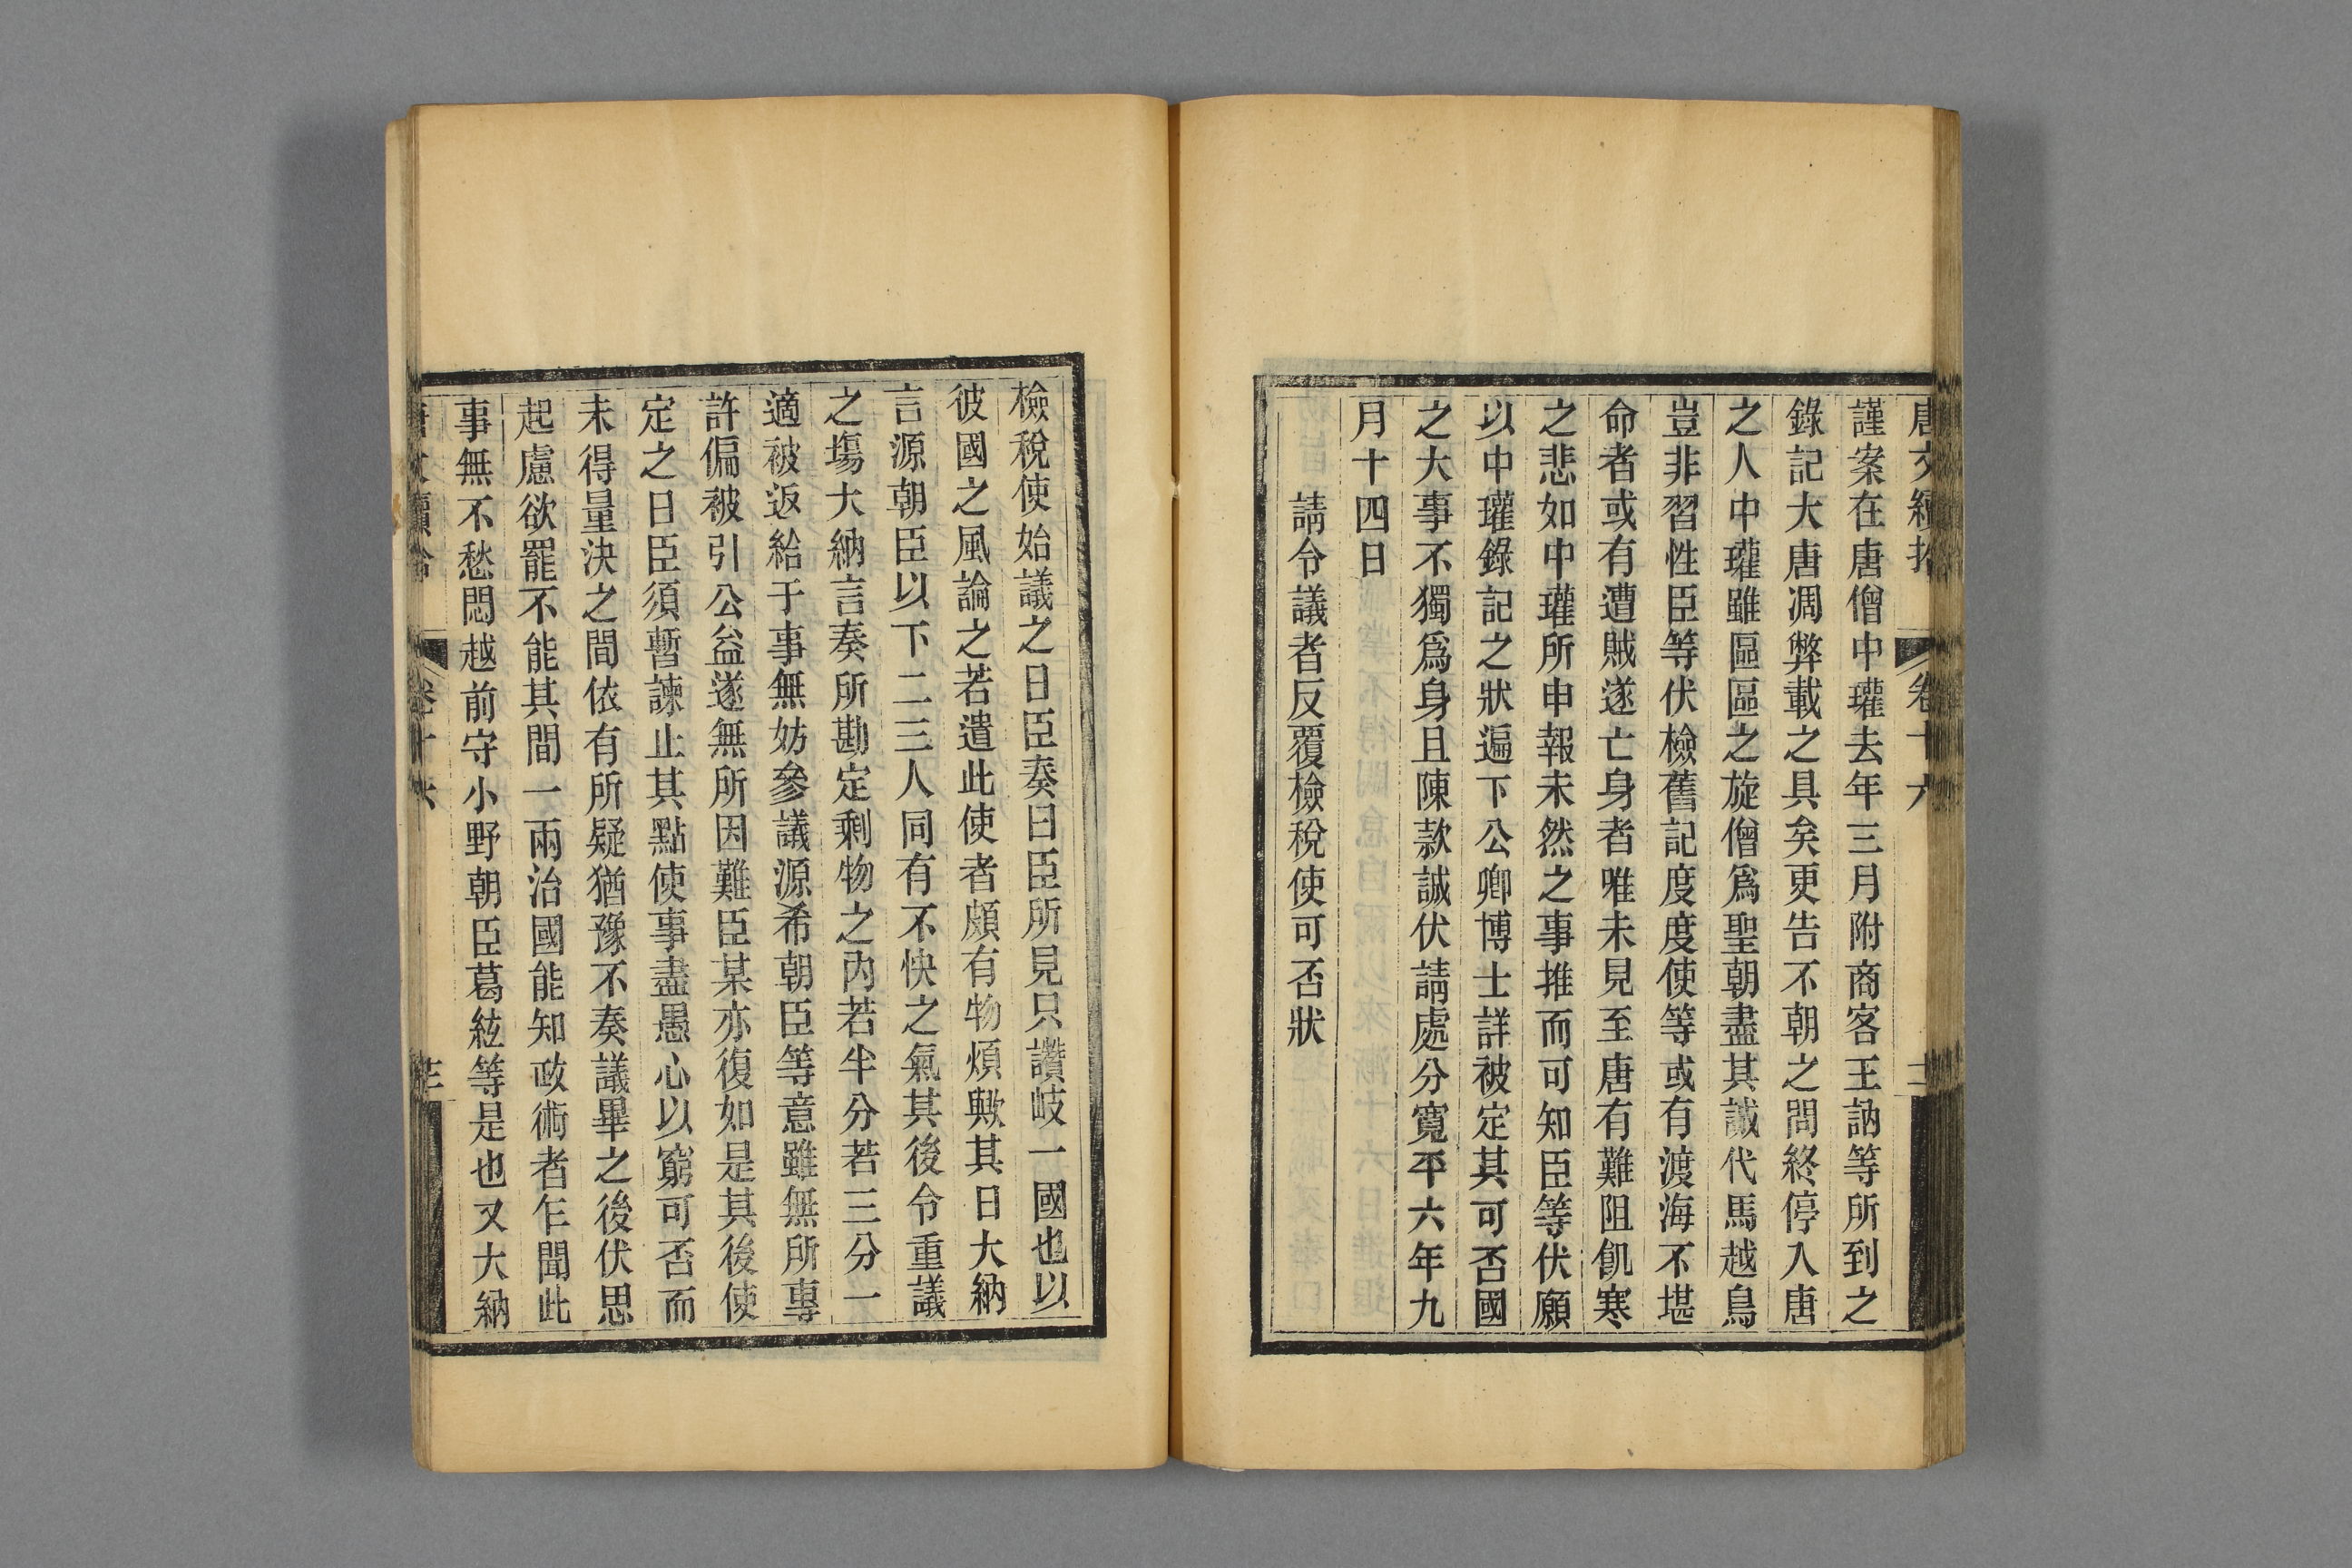 謹案在唐僧中瓘去年三月附商客王訥等所到之
錄記大唐凋弊載之具矣更告不朝之問終停入唐
之人中瓘雖區區之旋僧爲聖朝盡其誠代馬越鳥
豈非習性臣等伏檢舊記度度使等或有渡海不堪
命者或有遭賊遂亡身者唯未見至唐有難阻飢寒
之悲如中瓘所申報未然之事推而可知臣等伏願
以中瓘錄記之狀遍下公卿博士詳被定其可否國
之大事不獨爲身且陳款誠伏請處分寬平六年九
月十四日
請令議者反覆檢稅使可否狀
檢稅使始議之日臣奏曰臣所見只讚岐一國也以
彼國之風論之若遣此使者頗有物煩歟其日大納
言源朝臣以下二三人同有不快之氣其後令重議
之塲大納言奏所勘定剩物之內若半分若三分一
適被返給于事無妨參議源希朝臣等意雖無所專
許偏被引公益遂無所因難臣某亦復如是其後使
定之日臣須暫諫止其點使事盡愚心以窮可否而
未得量決之間依有所疑猶豫不奏議畢之後伏思
起慮欲罷不能其間一兩治國能知政術者乍聞此
事無不愁悶越前守小野朝臣葛絃等是也又大納